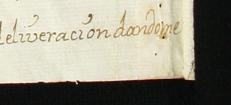 deliveración dandome